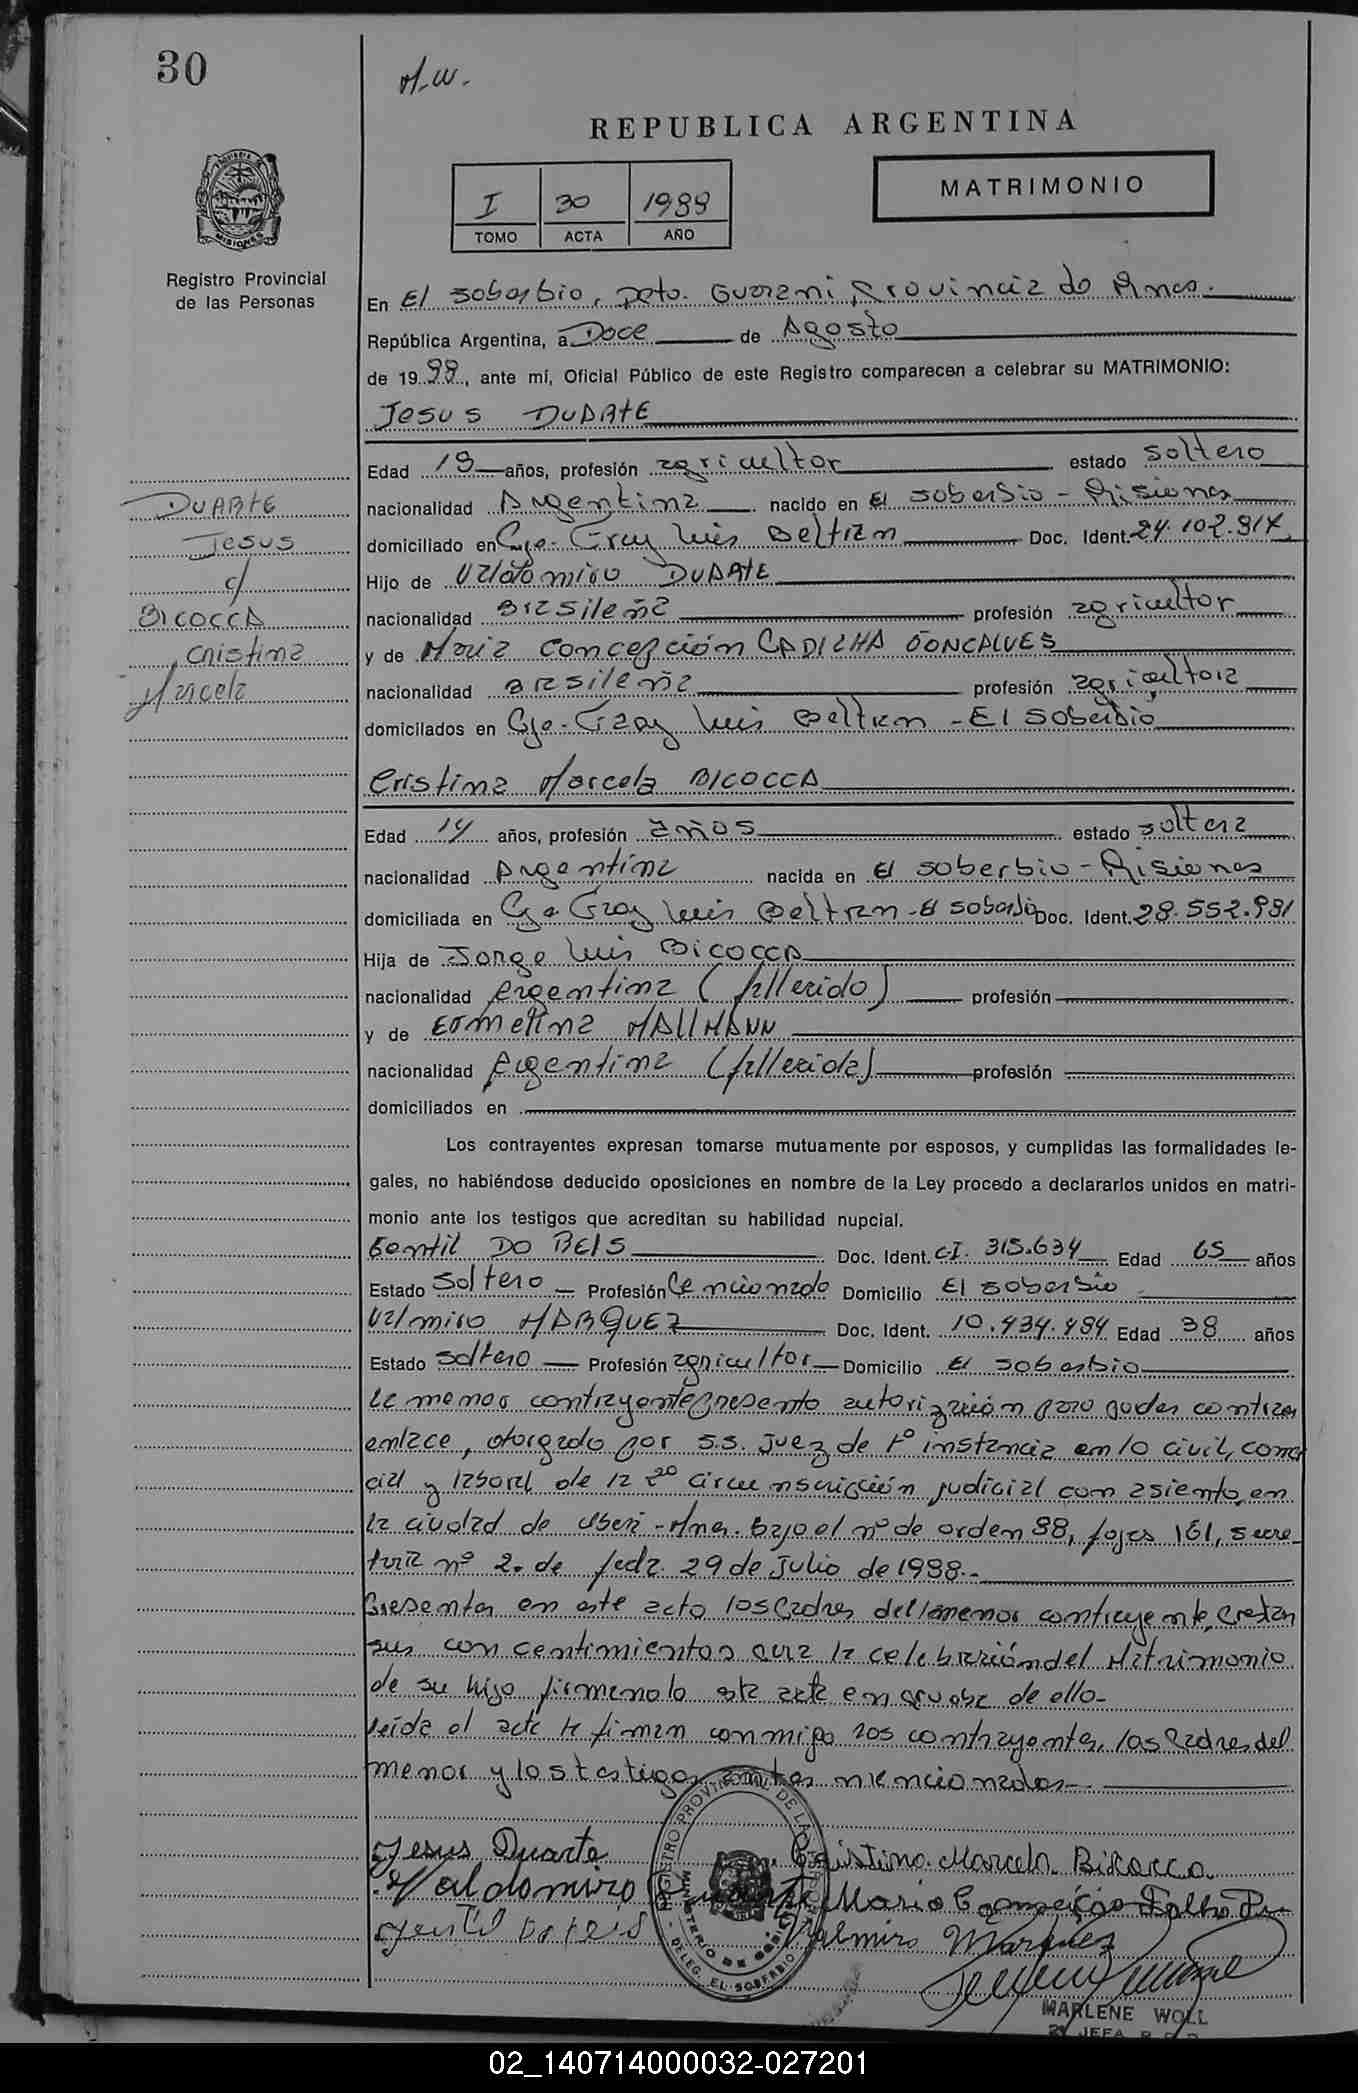 30
M.W.
REPUBLICA ARGENTINA
I 30 1988
TOMO ACTA AÑO
MATRIMONIO
MISIONES
Registro Provincial
de las Personas
En El Soberbio, Dpto. Guarani Provincia de Mnes.
República Argentina, a Doce de Agosto
de 1988, ante mí, Oficial Público de este Registro comparecen a celebrar su MATRIMONIO:
Jesus DUARTE
Edad 19 años, profesión agricultor estado soltero
nacionalidad Argentina nacido en El Soberbio - Misiones
domiciliado en Cje. Fray Luis Beltran Doc. Ident. 24.102.914
Hijo de Valdomiro DUARTE
nacionalidad Brasileña profesión agricultor
y de Maria Concepción CADILHA GONCALVES
nacionalidad Brasileña profesión agricultora
domicilados en Cje. Fray Luis Beltran - El Soberbio
DUARTE
Jesus
c/
BICOCCA
Cristina
Marcela
Cristina Marcela BICOCCA
Edad 14 años, profesión años estado soltera
nacionalidad Argentina nacida en El Soberbio - Misiones
domiciliada en Cje Fray Luis Beltran - El Soberbio Doc. Ident. 28.552.981
Hija de Jorge Luis BICOCCA
nacionalidad Argentina (fallecido) profesión
y de Ermelina MALLMANN
nacionalidad Argentina (fallecida) profesión
domiciliados en
Los contrayentes expresan tomarse mutuamente por esposos, y cumplidas las formalidades le-
gales, no habiéndose deducido oposiciones en nombre de la Ley procedo a declararlos unidos en matri-
monio ante los testigos que acreditan su habilidad nupcial.
Gentil DO REIS Doc. Ident. C.I. 315.634 Edad 65 años
Estado Soltero Profesión Pencionado Domicilio El Soberbio
Valmiro MARQUEZ Doc. Ident. 10.434.484 Edad 38 años
Estado Soltero Profesión agricultor Domicilio El Soberbio
La menor contrayente presento autorización para poder contraer
enlace, otorgado por S.S. Juez de 1º instancia en lo civil, comer
cial y laboral de la 2º circunscripción judicial con asiento en
la ciudad de Oberá - Mnes. bajo el nº de orden 98, fojas 161, secre
taria nº 2. de fecha 29 de Julio de 1988.-
Presentes en este acto los Padres del menor contrayente, Prestan
sus concentimientos para la celebración del Matrimonio
de su hijo firmando esta acta en prueba de ello-
Leída el acta la firman conmigo los contrayentes, los Padres del
menor y los testigos antes mencionados-
Jesus Duarte Cristina Marcela Bicocca
Valdomiro Duarte Maria Conceição
Gentil Do Reis Valmiro Marquez
REGISTRO PROVINCIAL DE LAS PERSONAS
MINISTERIO DE GOBIERNO
DELEG. EL SOBERBIO
MARLENE WOLL
JEFA
02_140714000032-027201